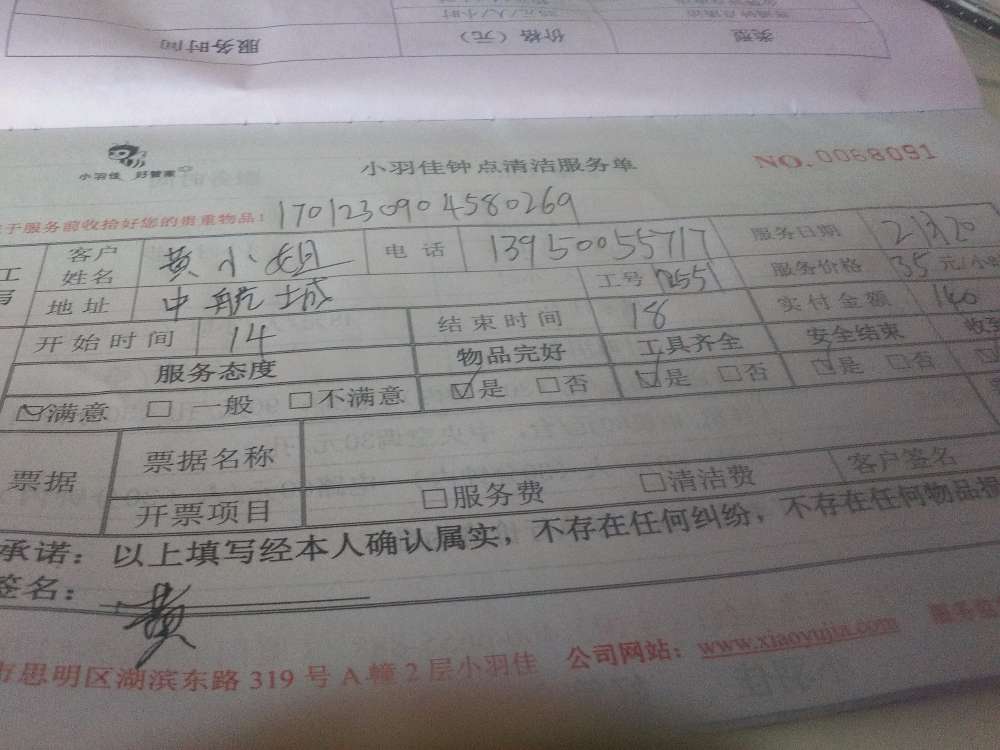 服务时间 价格（元） 类型
小羽佳 好管家
小羽佳钟点清洁服务单
NO.0068091
于服务前收拾好您的贵重物品！ 1701230904580269
客户姓名 黄小姐 电话 13950055717 服务日期
地址 中航城 工号 服务价格 35 元/小时
开始时间 14 结束时间 18 实付金额 140
服务态度 物品完好 工具齐全 安全结束
☑满意 □一般 □不满意 ☑是 □否 ☑是 □否 ☑是 □否
票据 票据名称
开票项目 □服务费 □清洁费 客户签名
承诺：以上填写经本人确认属实，不存在任何纠纷，不存在任何物品损
签名： 黄
市思明区湖滨东路 319 号 A 幢 2 层小羽佳 公司网站：www.xiaoyujia.com 服务监